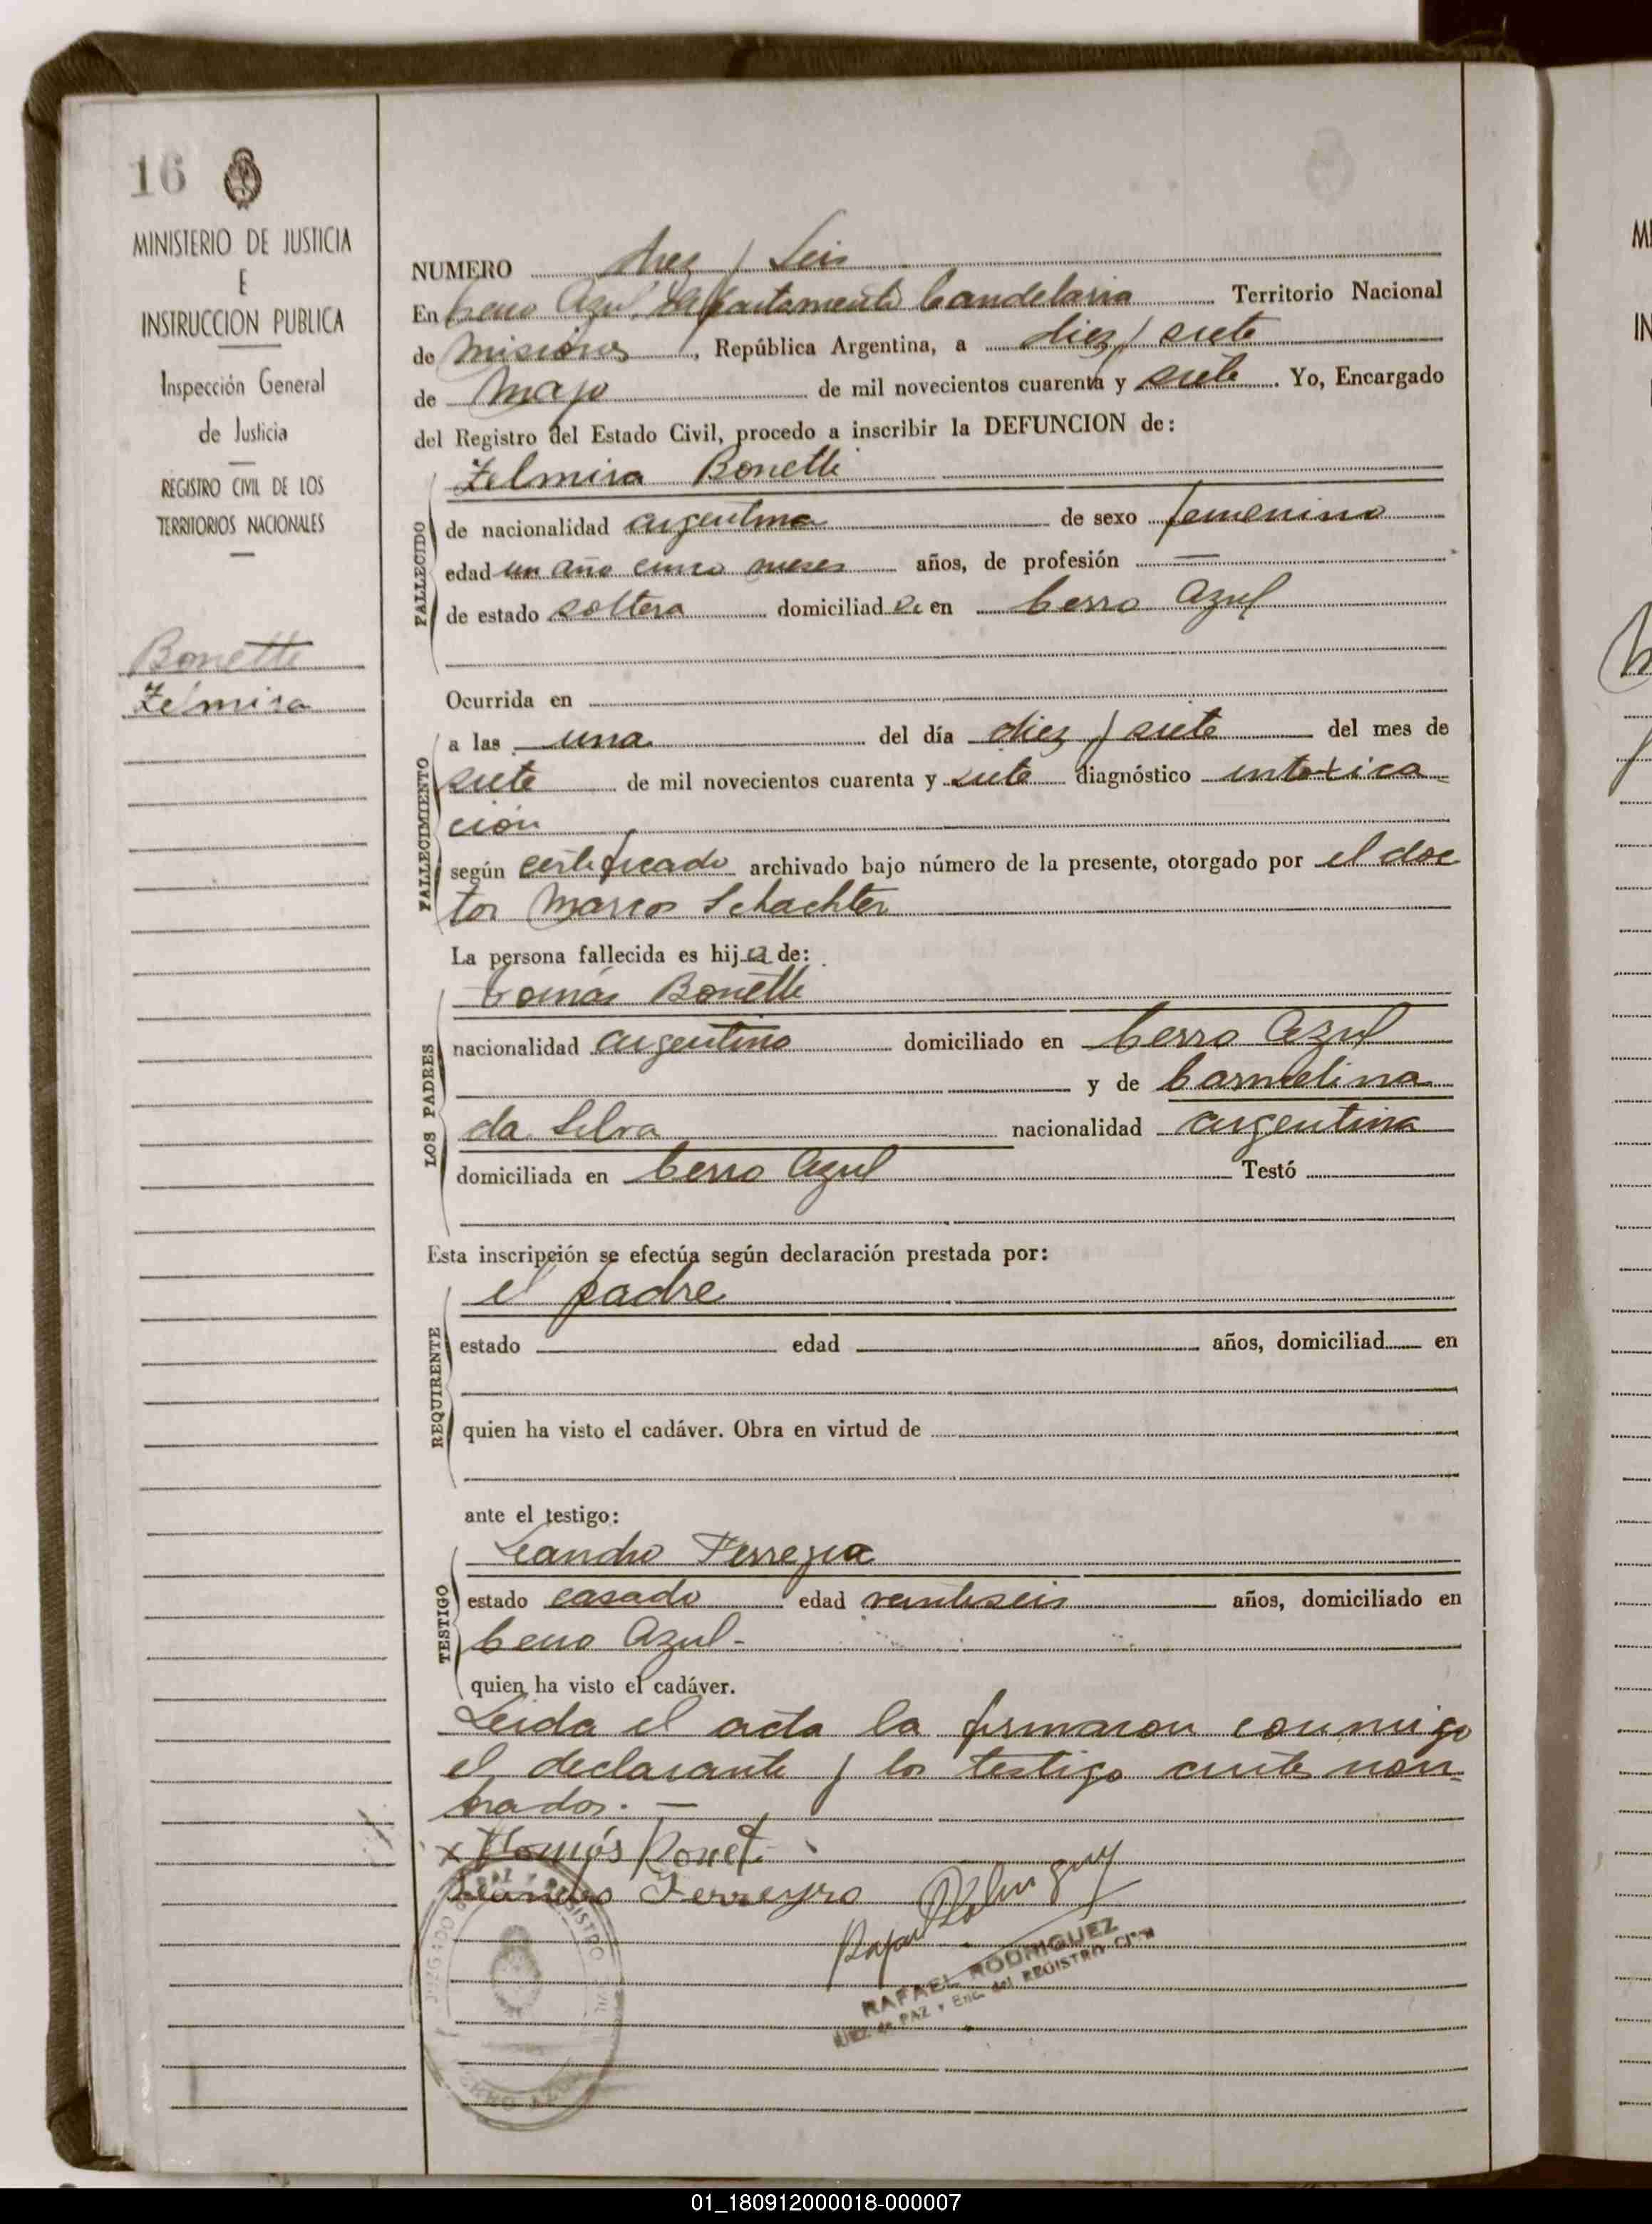 16
MINISTERIO DE JUSTICIA
E
INSTRUCCION PUBLICA
Inspección General
de Justicia
REGISTRO CIVIL DE LOS
TERRITORIOS NACIONALES
Bonetti
Zelmira
NUMERO diez y Seis
En Cerro Azul, departamento Candelaria Territorio Nacional
de Misiones, República Argentina, a diez y siete
de Mayo de mil novecientos cuarenta y siete. Yo, Encargado
del Registro del Estado Civil, procedo a inscribir la DEFUNCION de:
FALLECIDO
Zelmira Bonetti
de nacionalidad argentina de sexo femenino
edad un año cinco meses años, de profesión —
de estado soltera domiciliada en Cerro Azul
Ocurrida en
FALLECIMIENTO
a las una del día diez y siete del mes de
siete de mil novecientos cuarenta y siete diagnóstico intoxica-
ción
según certificado archivado bajo número de la presente, otorgado por el doc
tor Marcos Schachter
La persona fallecida es hija de:
LOS PADRES
Tomás Bonetti
nacionalidad argentino domiciliado en Cerro Azul
y de Carmelina
da Silva nacionalidad argentina
domiciliada en Cerro Azul Testó
Esta inscripción se efectúa según declaración prestada por:
REQUIRENTE
el padre
estado edad años, domiciliad en
quien ha visto el cadáver. Obra en virtud de
ante el testigo:
TESTIGO
Leandro Ferreyra
estado casado edad veintiseis años, domiciliado en
Cerro Azul-
quien ha visto el cadáver.
Leida el acta la firmaron conmigo
el declarante y los testigo ante nom-
brados. —
x Tomás Bonet
Leandro Ferreyro
RAFAEL RODRIGUEZ
JUEZ de PAZ y Enc. del REGISTRO CIVIL
JUZGADO DE PAZ Y REGISTRO CIVIL
CERRO AZUL
01_180912000018-000007